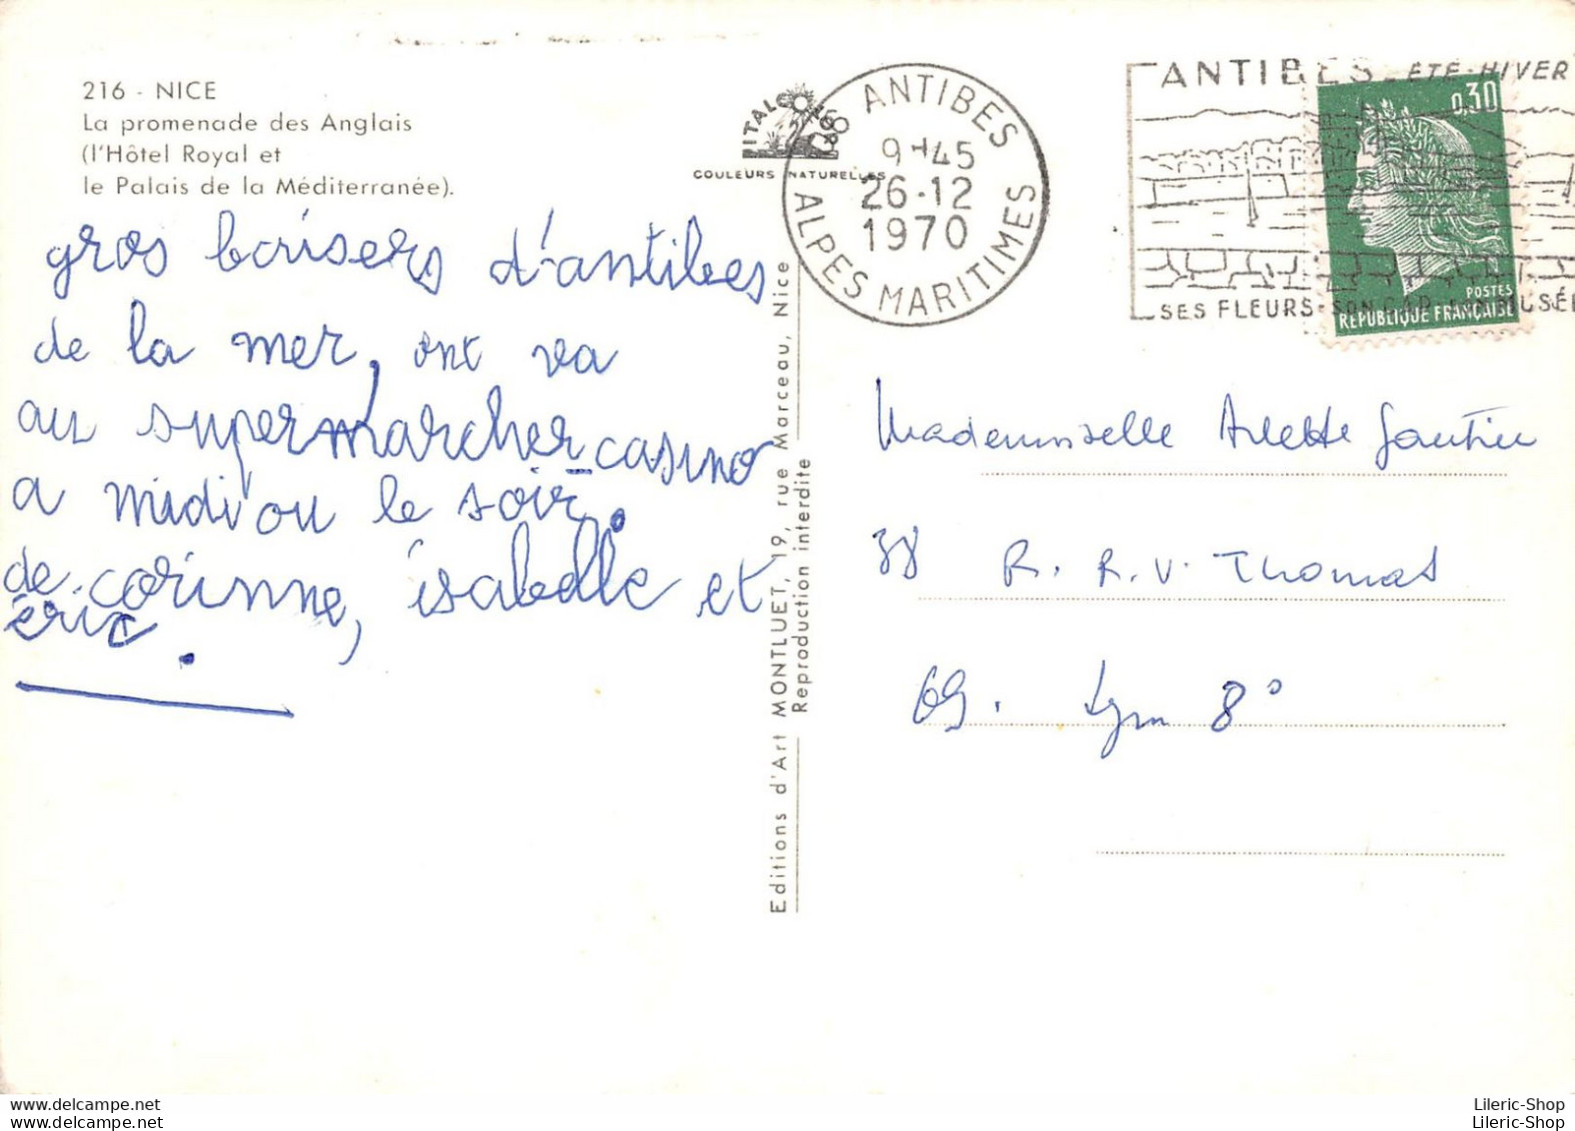 216 - NICE
La promenade des Anglais
(l'Hôtel Royal et
le Palais de la Méditerranée).
ITALCOLOR
COULEURS NATURELLES
06 ANTIBES
9H45
26-12
1970
ALPES MARITIMES
ANTIBES ETE-HIVER
SES FLEURS-SON CAP
0,30
POSTES
REPUBLIQUE FRANÇAISE
gros baisers d'antibes
de la mer, ont va
au supermarcher casino
a midi ou le soir.
de corinne, isabelle et
éric.
Editions d'Art MONTLUET, 19, rue Marceau, Nice
Reproduction interdite
Mademoiselle Arlette Gautier
38 R. R.V. Thomas
69. Lyon 8°
www.delcampe.net
www.delcampe.net
Lileric-Shop
Lileric-Shop